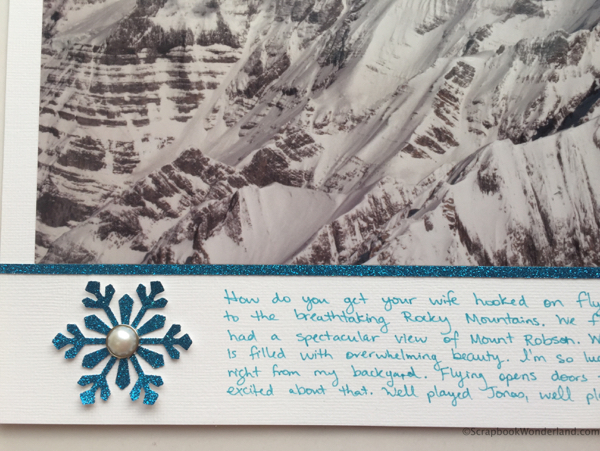 How do you get your wife hooked on fly
to the breathtaking Rocky Mountains. We f
had a spectacular view of Mount Robson. W
is filled with overwhelming beauty. I'm so luc
right from my backyard. Flying opens doors
excited about that. Well played Jonas, well pl
©ScrapbookWonderland.com